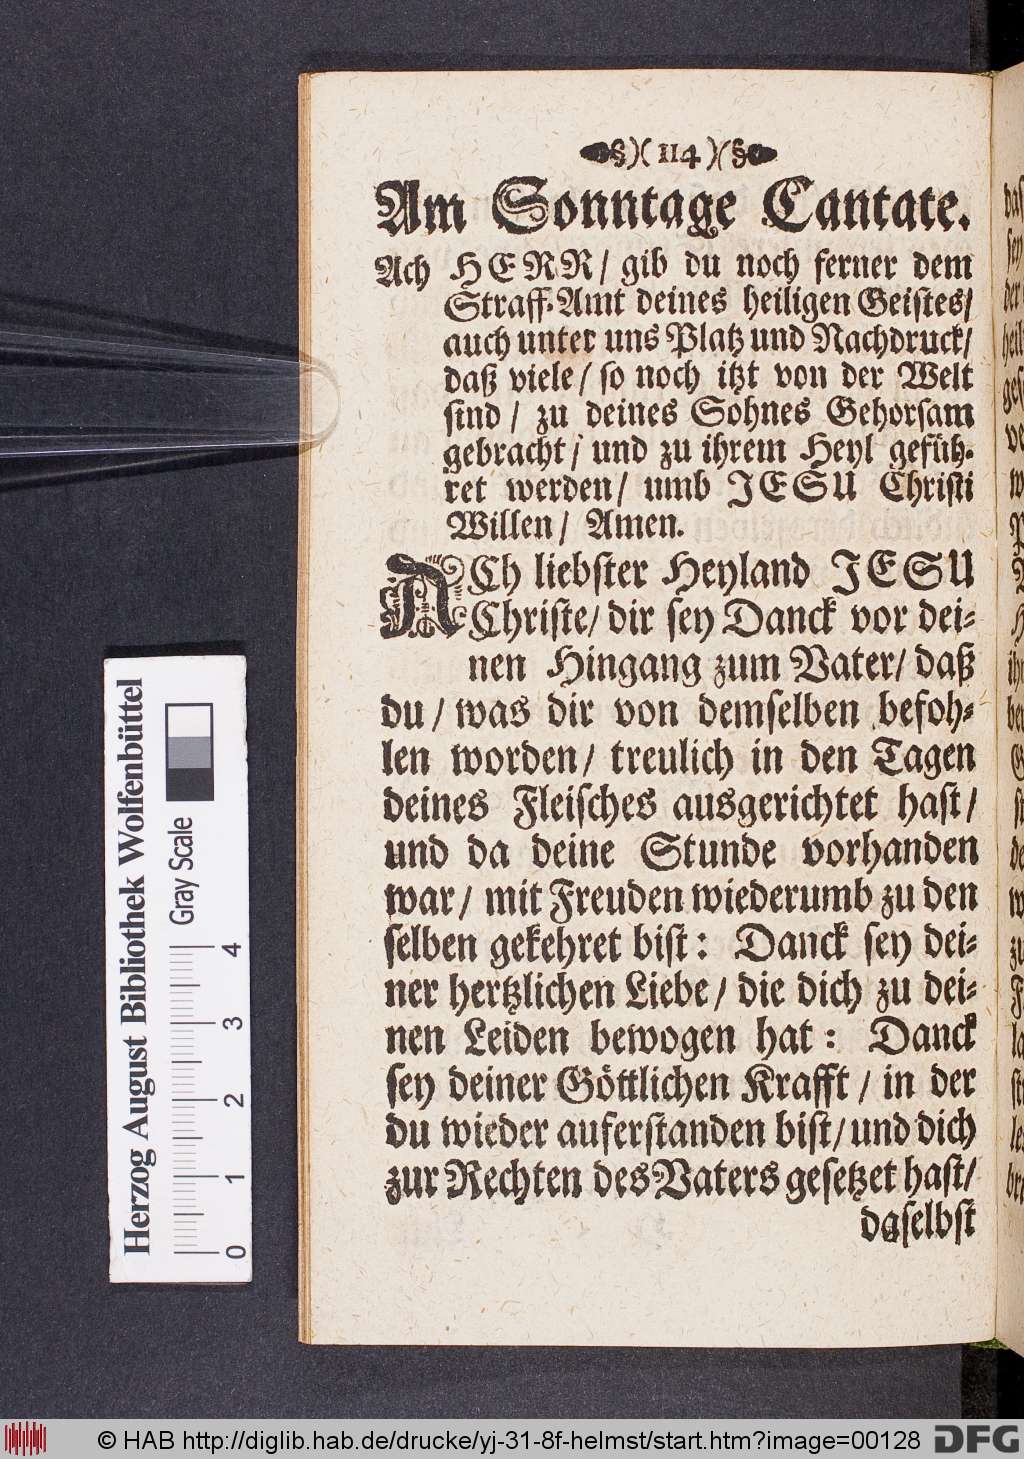 §)( 114 )(§
Am Sonntage Cantate.
Ach HERR/ gib du noch ferner dem
Straff-Amt deines heiligen Geistes/
auch unter uns Platz und Nachdruck/
daß viele/ so noch itzt von der Welt
sind/ zu deines Sohnes Gehorsam
gebracht/ und zu ihrem Heyl gefüh-
ret werden/ umb JESU Christi
Willen/ Amen.
ACh liebster Heyland JESU
Christe/ dir sey Danck vor dei-
nen Hingang zum Vater/ daß
du/ was dir von demselben befoh-
len worden/ treulich in den Tagen
deines Fleisches ausgerichtet hast/
und da deine Stunde vorhanden
war/ mit Freuden wiederumb zu den
selben gekehret bist: Danck sey dei-
ner hertzlichen Liebe/ die dich zu dei-
nen Leiden bewogen hat: Danck
sey deiner Göttlichen Krafft/ in der
du wieder auferstanden bist/ und dich
zur Rechten des Vaters gesetzet hast/
daselbst
Herzog August Bibliothek Wolfenbüttel
Gray Scale
0 1 2 3 4
© HAB http://diglib.hab.de/drucke/yj-31-8f-helmst/start.htm?image=00128
DFG